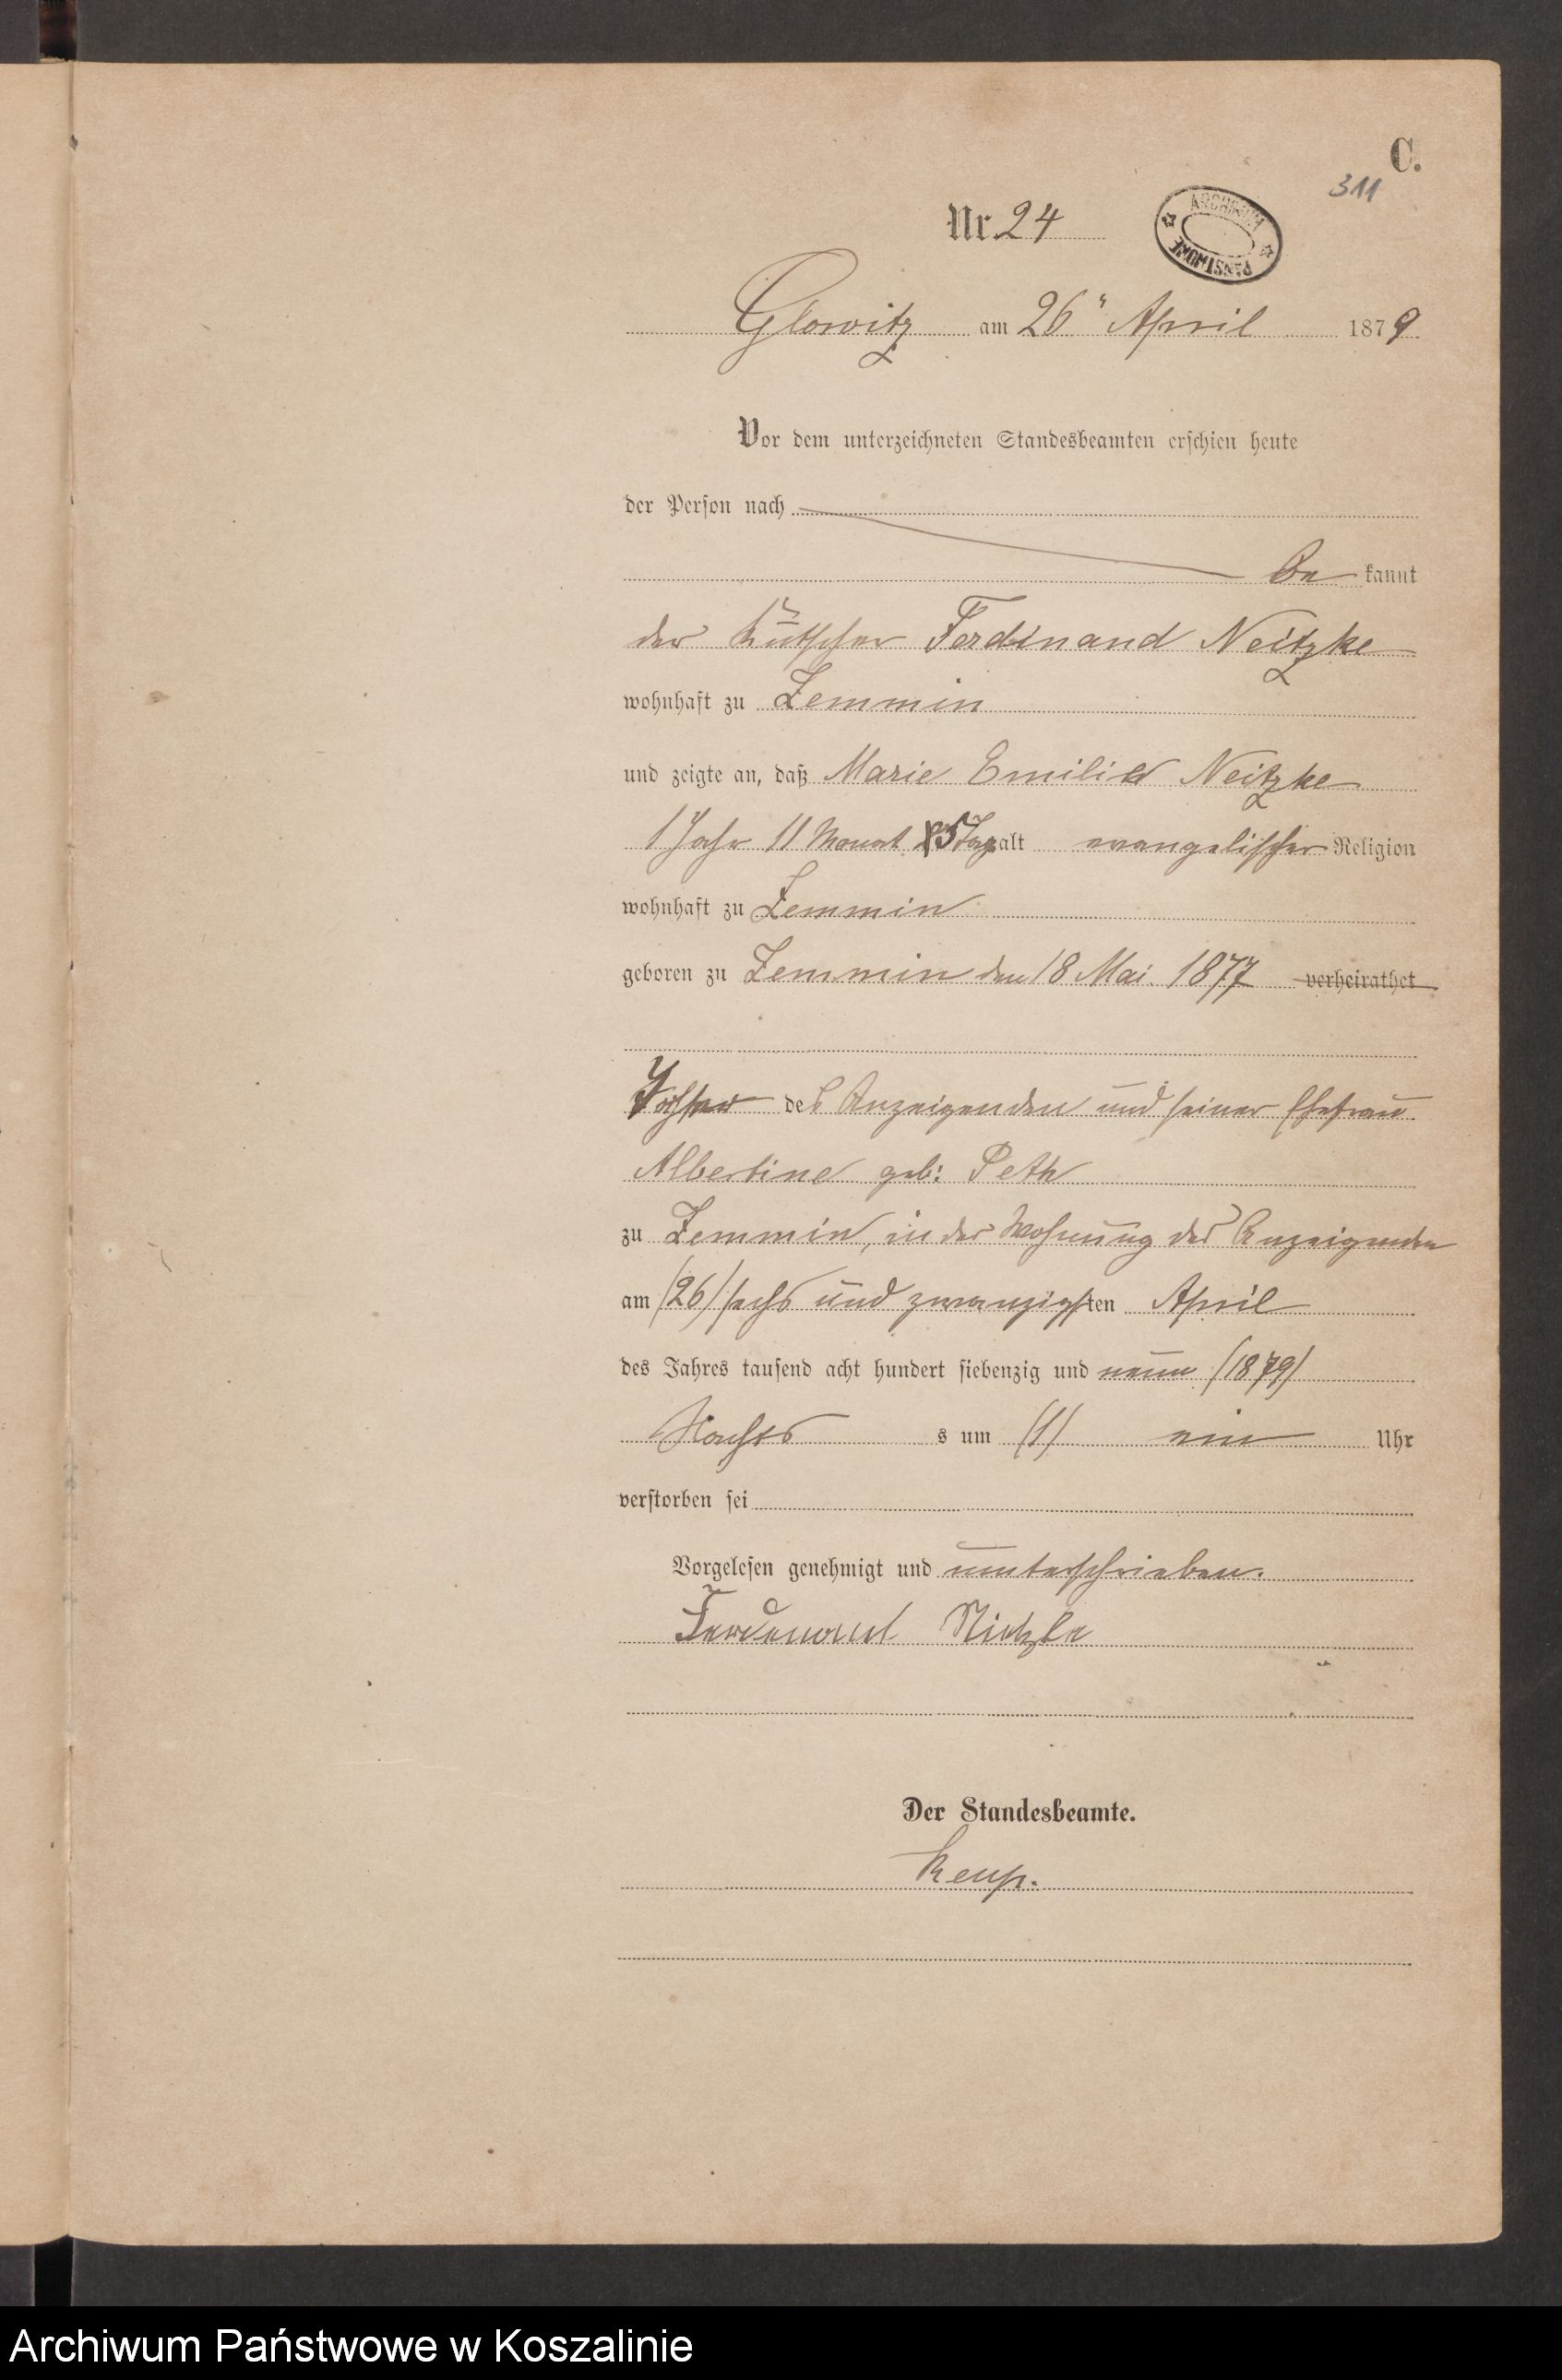 C.
311
Nr. 24
ARCHIWUM PAŃSTWOWE
Glowitz am 26" April 1879
Vor dem unterzeichneten Standesbeamten erschien heute
der Person nach
be kannt
der Kutscher Ferdinand Neitzke
wohnhaft zu Zemmin
und zeigte an, daß Marie Emilie Neitzke
1 Jahr 11 Monat 5 Tage alt evangelischer Religion
wohnhaft zu Zemmin
geboren zu Zemmin den 18 Mai 1877 verheirathet
Tochter des Anzeigenden und seiner Ehefrau
Albertine geb: Peth
zu Zemmin, in der Wohnung des Anzeigenden
am (26) sechs und zwanzigsten April
des Jahres tausend acht hundert siebenzig und neun (1879)
Nachts s um (1) ein Uhr
verstorben sei
Vorgelesen genehmigt und unterschrieben.
Ferdenant Nietzke
Der Standesbeamte.
Archiwum Państwowe w Koszalinie